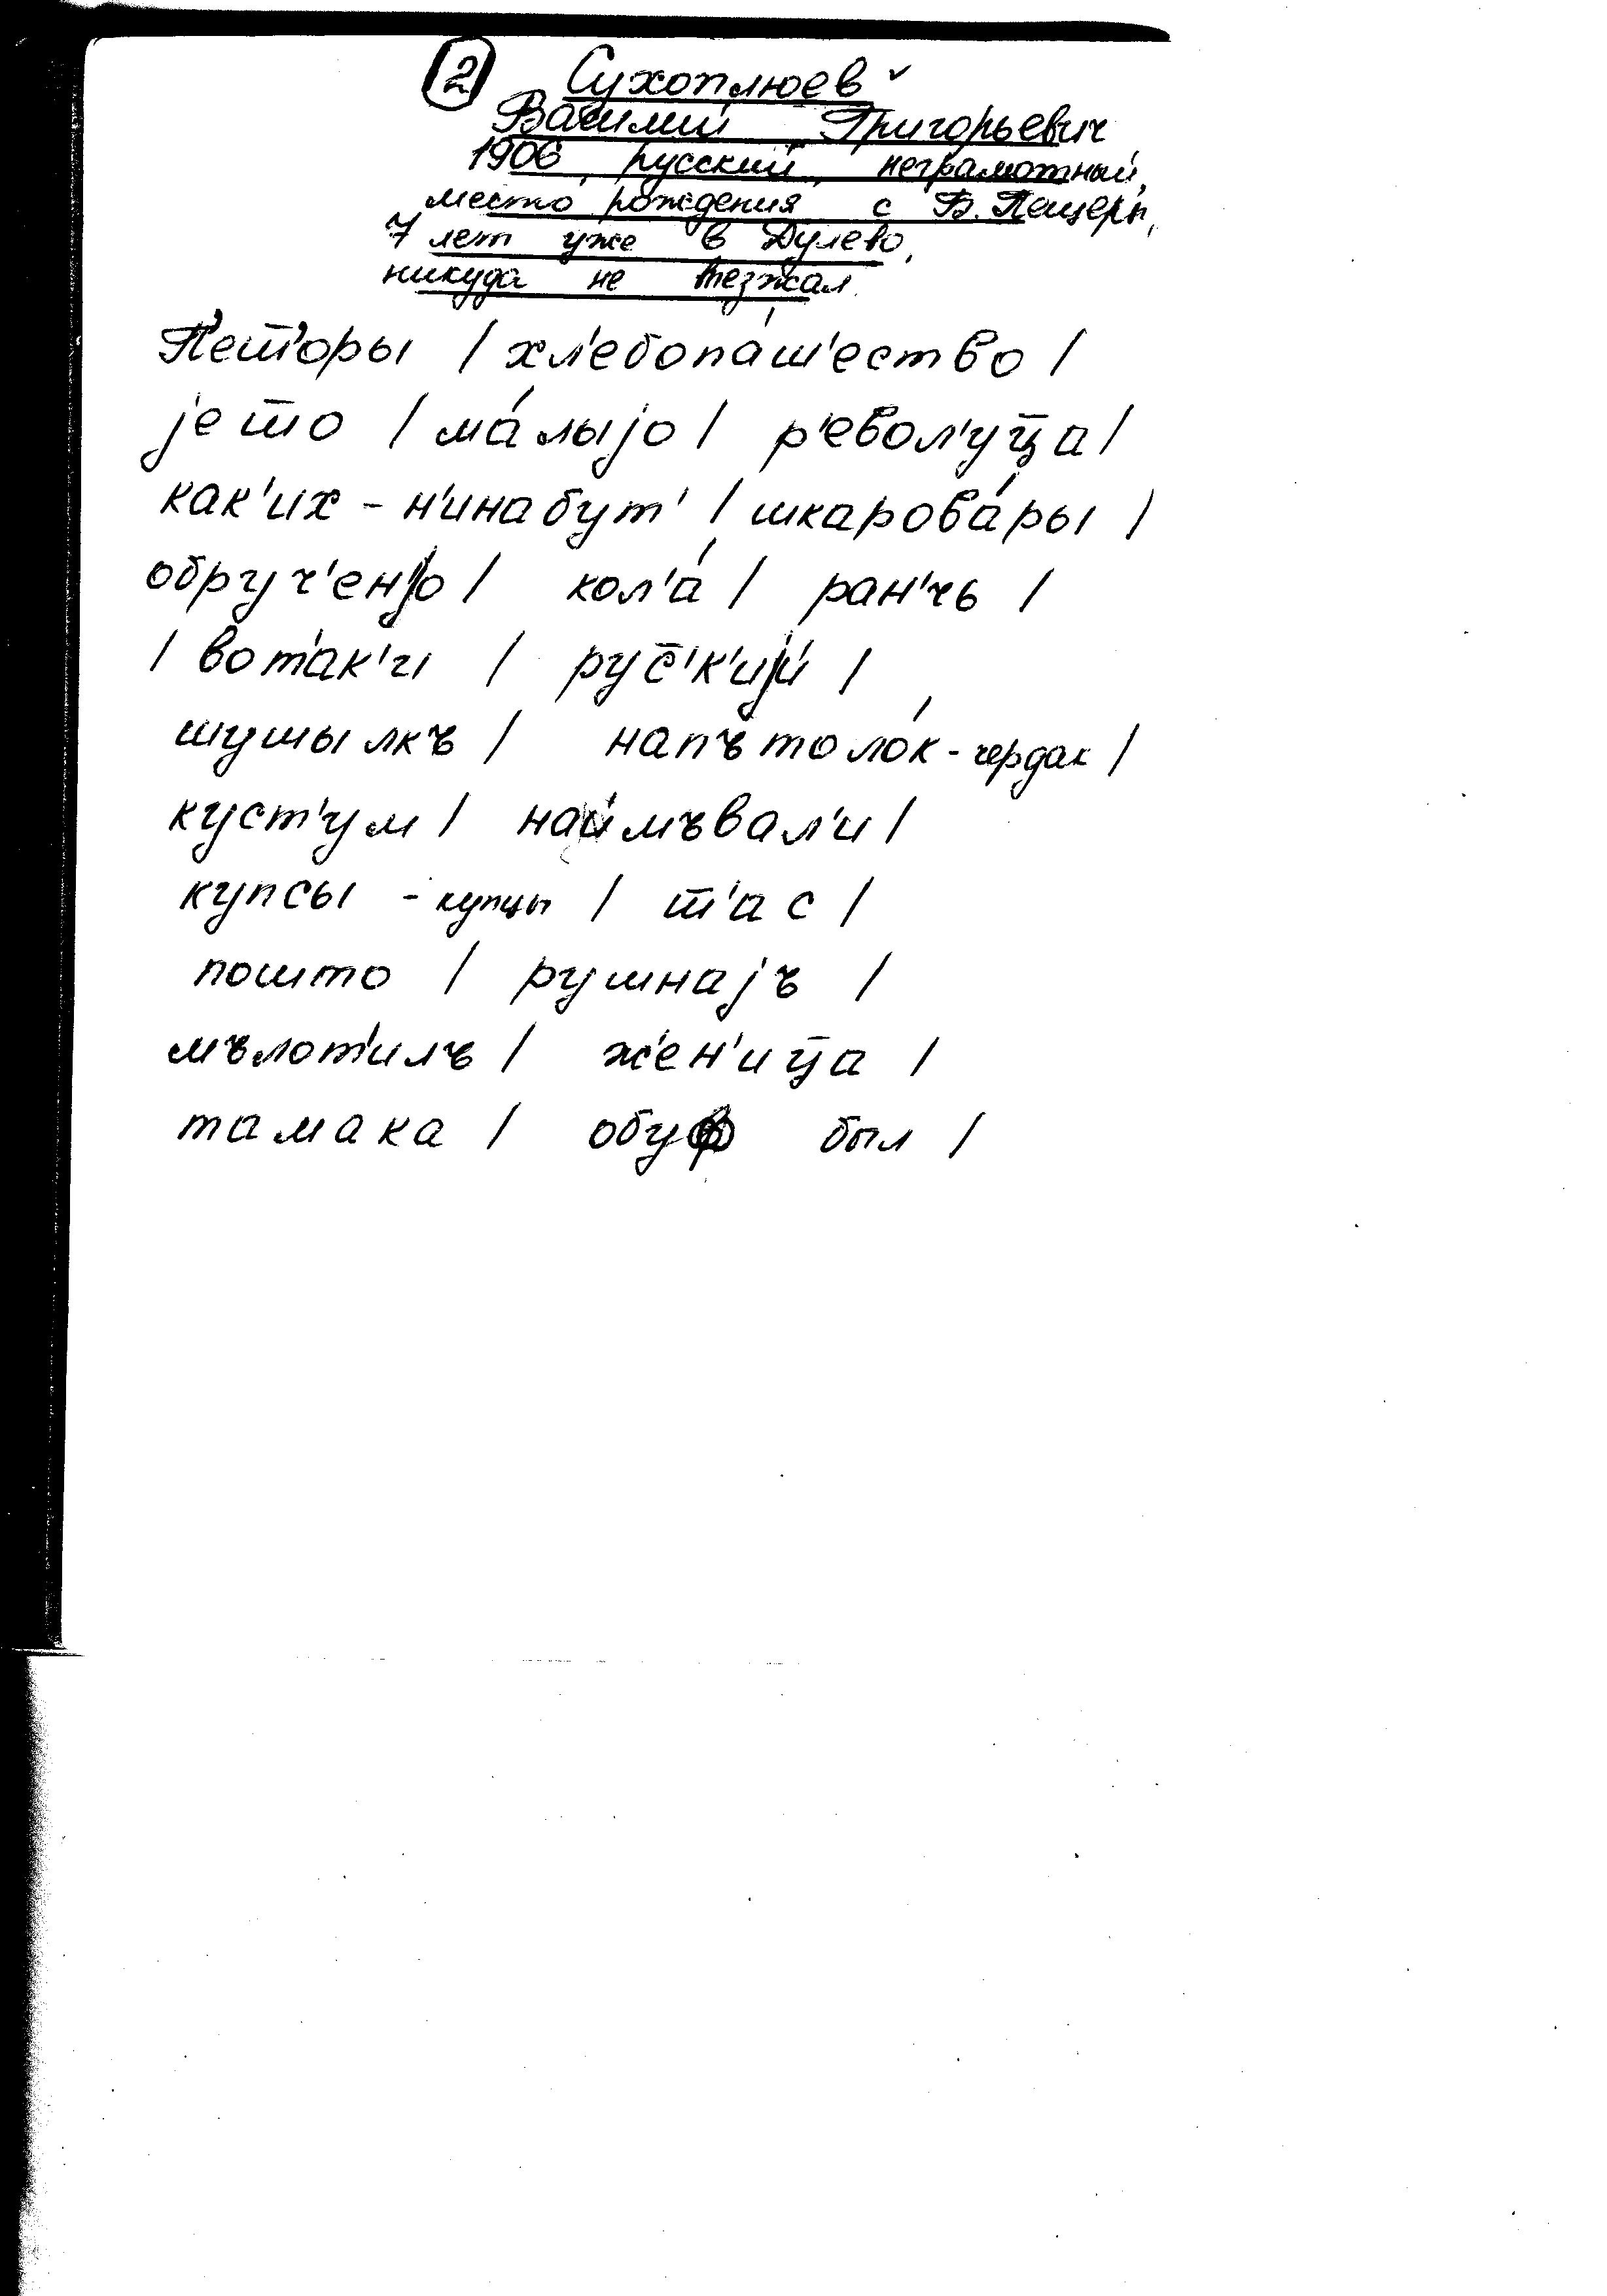 ② Сухоплюев ✓
Василий Григорьевич
1906, русский, неграмотный,
место рождения с Б. Пещеры,
7 лет уже в Дулево,
никуда не
П'еш̅'оры / хл'ебопа́ш'ество /
jеш̅о / ма́лыjо / р'евол'уц̅а /
как'их - н'инабут' / шкарова́ры /
обруч'енjо / кол'а́ / ран'чь /
/ вот'ак'и / рус̅'к'иj /
шушылкъ / напътоло́к - чердак /
куст'ум / наймъвал'и /
купсы - купцы / ш̅'ас /
пошто / рушнаjъ /
мълот'илъ / ж'ен'иц̅а /
тамака / обуф был /